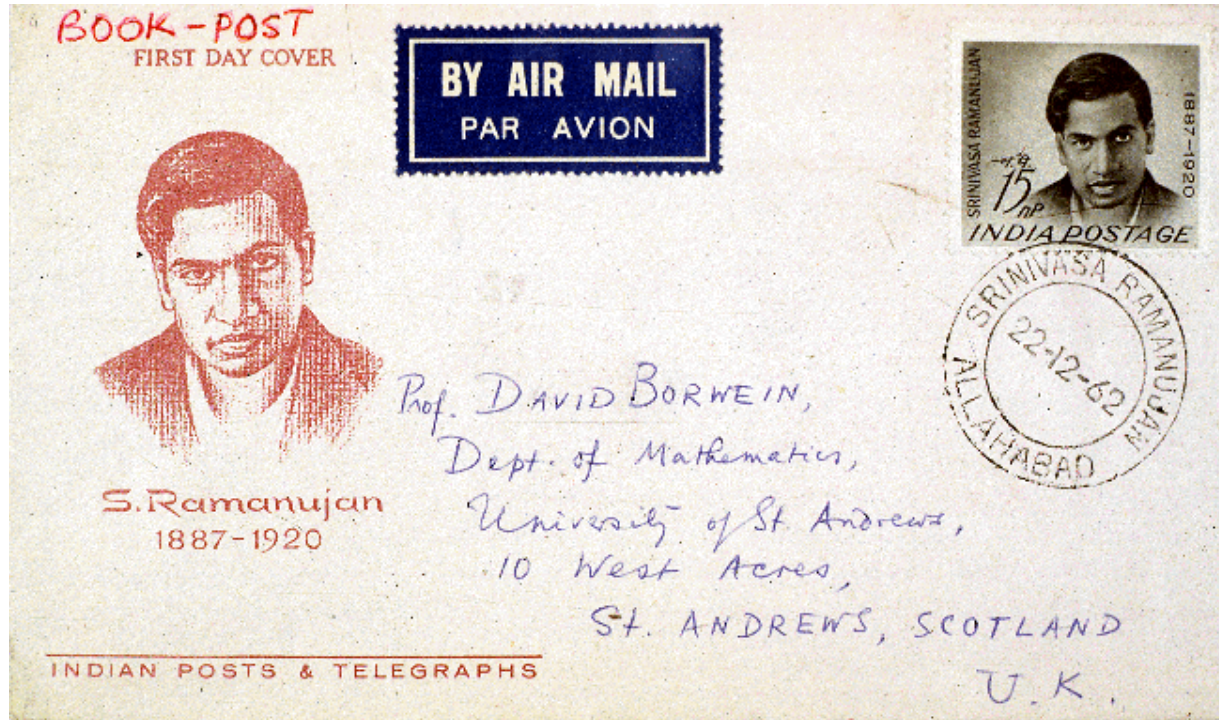 BOOK-POST
FIRST DAY COVER
BY AIR MAIL
PAR AVION
SRINIVASA RAMANUJAN
1887-1920
15
nP
INDIA POSTAGE
SRINIVASA RAMANUJAN
22-12-62
ALLAHABAD
S.Ramanujan
1887-1920
Prof. DAVID BORWEIN,
Dept. of Mathematics,
University of St. Andrews,
10 West Acres,
St. ANDREWS, SCOTLAND
U.K.
INDIAN POSTS & TELEGRAPHS